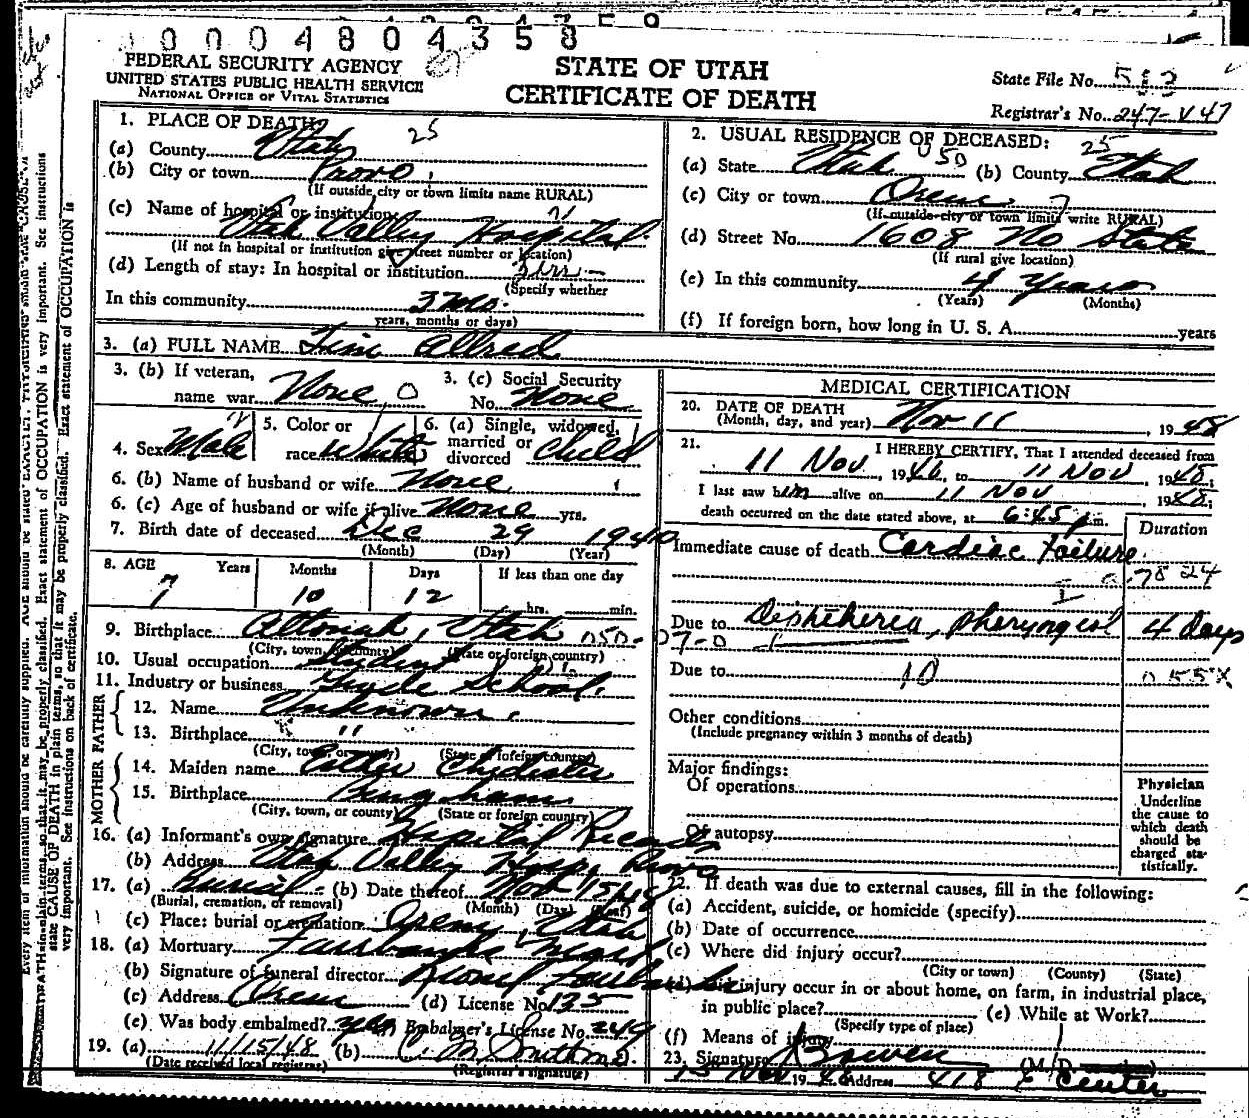 0004804358
FEDERAL SECURITY AGENCY
UNITED STATES PUBLIC HEALTH SERVICE
NATIONAL OFFICE OF VITAL STATISTICS
STATE OF UTAH
CERTIFICATE OF DEATH
State File No. 552
Registrar's No. 247-V 47
1. PLACE OF DEATH: 25
(a) County Utah
(b) City or town Provo
(If outside city or town limits name RURAL)
(c) Name of hospital or institution
Utah Valley Hospital
(If not in hospital or institution give street number or location)
(d) Length of stay: In hospital or institution 3 hrs
(Specify whether
In this community 3 Mo.
years, months or days)
2. USUAL RESIDENCE OF DECEASED: 25
(a) State Utah 050 (b) County Utah
(c) City or town Orem
(If outside city or town limits write RURAL)
(d) Street No. 1608 No State
(If rural give location)
(e) In this community 4 Years
(Years) (Months)
(f) If foreign born, how long in U. S. A. years
3. (a) FULL NAME Allred
3. (b) If veteran,
name war None 0
3. (c) Social Security
No. None
4. Sex Male
5. Color or
race White
6. (a) Single, widowed,
married or
divorced Child
6. (b) Name of husband or wife None
6. (c) Age of husband or wife if alive None yrs.
7. Birth date of deceased Dec 29 1940
(Month) (Day) (Year)
8. AGE Years Months Days If less than one day
7 10 12 hrs. min.
9. Birthplace Altonah, Utah 050-
(City, town, or county) (State or foreign country)
10. Usual occupation Student
11. Industry or business Grade School.
FATHER
12. Name Unknown
13. Birthplace "
(City, town, or county) (State or foreign country)
MOTHER
14. Maiden name Chidester
15. Birthplace Bingham
(City, town, or county) (State or foreign country)
16. (a) Informant's own signature Hospital Records
(b) Address Utah Valley Hosp, Provo
17. (a) Burial (b) Date thereof Nov 15 48
(Burial, cremation, or removal) (Month) (Day) (Year)
(c) Place: burial or cremation Orem, Utah
18. (a) Mortuary Fairbanks
(b) Signature of funeral director Fairbanks
(c) Address Orem (d) License No. 135
(e) Was body embalmed? yes Embalmer's License No. 249
19. (a) 11/15/48 (b)
(Date received local registrar) (Registrar's signature)
MEDICAL CERTIFICATION
20. DATE OF DEATH
(Month, day, and year) Nov 11 1948
21. I HEREBY CERTIFY, That I attended deceased from
11 Nov, 1948, to 11 Nov, 1948;
I last saw him alive on 11 Nov 1948;
death occurred on the date stated above, at 6:45 p.m.
Duration
Immediate cause of death Cardiac Failure
Due to Diphtheria, pharyngeal 4 days
07-0
Due to 10 055X
Other conditions
(Include pregnancy within 3 months of death)
Major findings:
Of operations
Of autopsy
Physician
Underline
the cause to
which death
should be
charged sta-
tistically.
22. If death was due to external causes, fill in the following:
(a) Accident, suicide, or homicide (specify)
(b) Date of occurrence
(c) Where did injury occur?
(City or town) (County) (State)
injury occur in or about home, on farm, in industrial place,
in public place? (e) While at Work?
(Specify type of place)
(f) Means of injury
23. Signature Bowen (M.D.
15 Nov 1948 Address 418 E Center